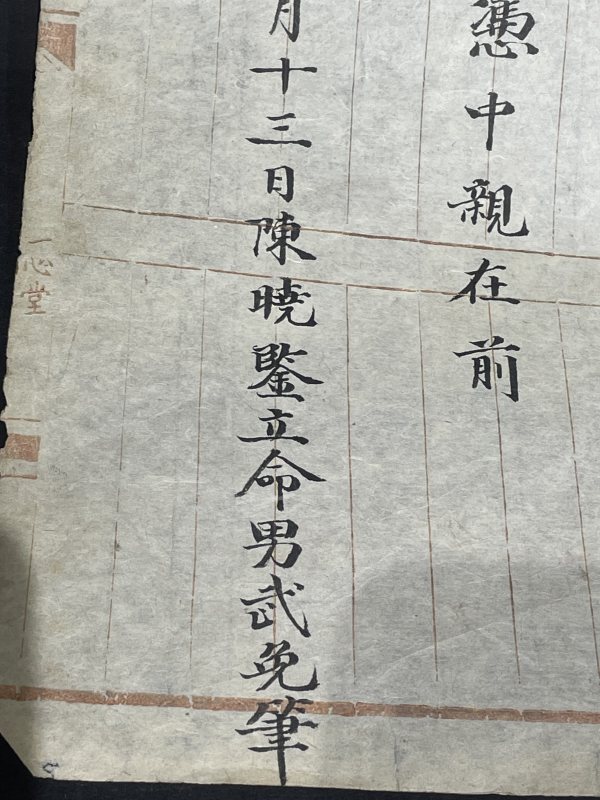 憑中親在前
月十三日陳曉鋻立命男武免筆
一心堂